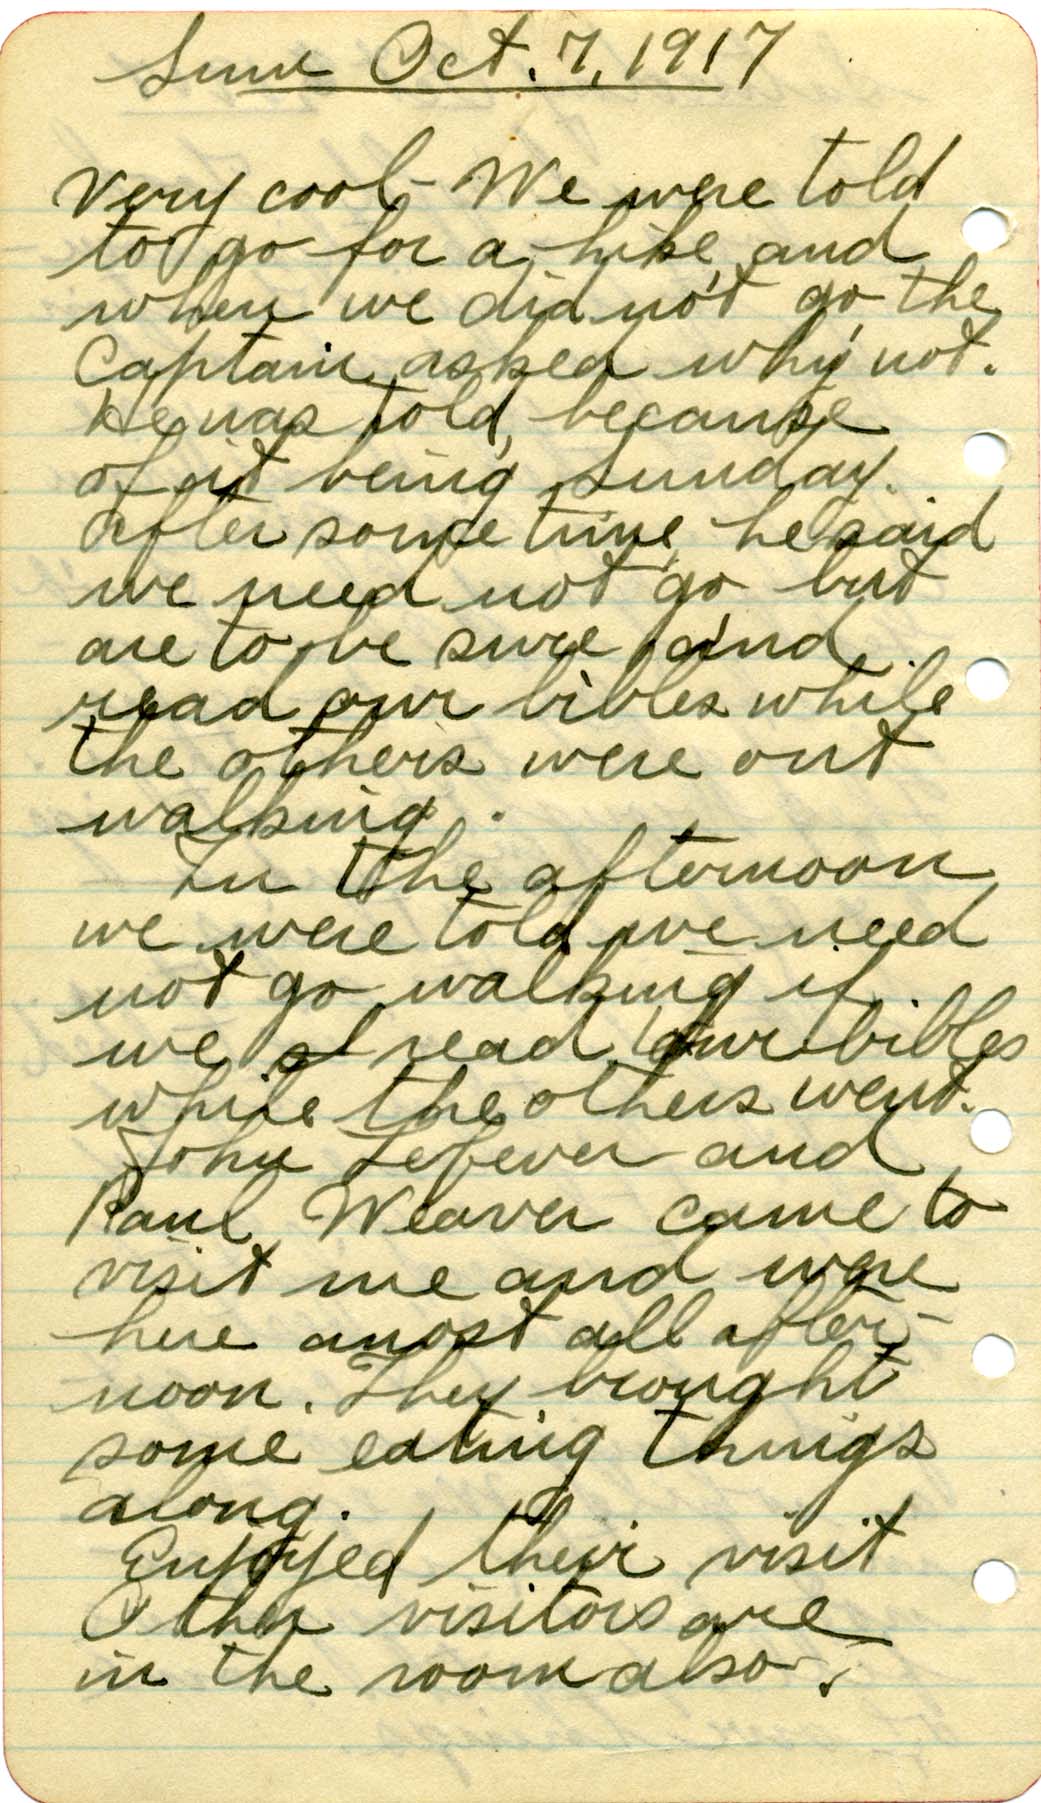 Sun Oct. 7, 1917
Very cool - We were told
to go for a hike and
when we did not go the
Captain asked why not.
He was told, because
of it being Sunday.
After some time he said
we need not go but
are to be sure and
read our bibles while
the others were out
walking.
In the afternoon
we were told we need
not go walking if
we read our bibles
while the others went.
John Lefever and
Paul Weaver came to
visit me and were
here amost all after-
noon. They brought
some eating things
along.
Enjoyed their visit
Other visitors are
in the room also.